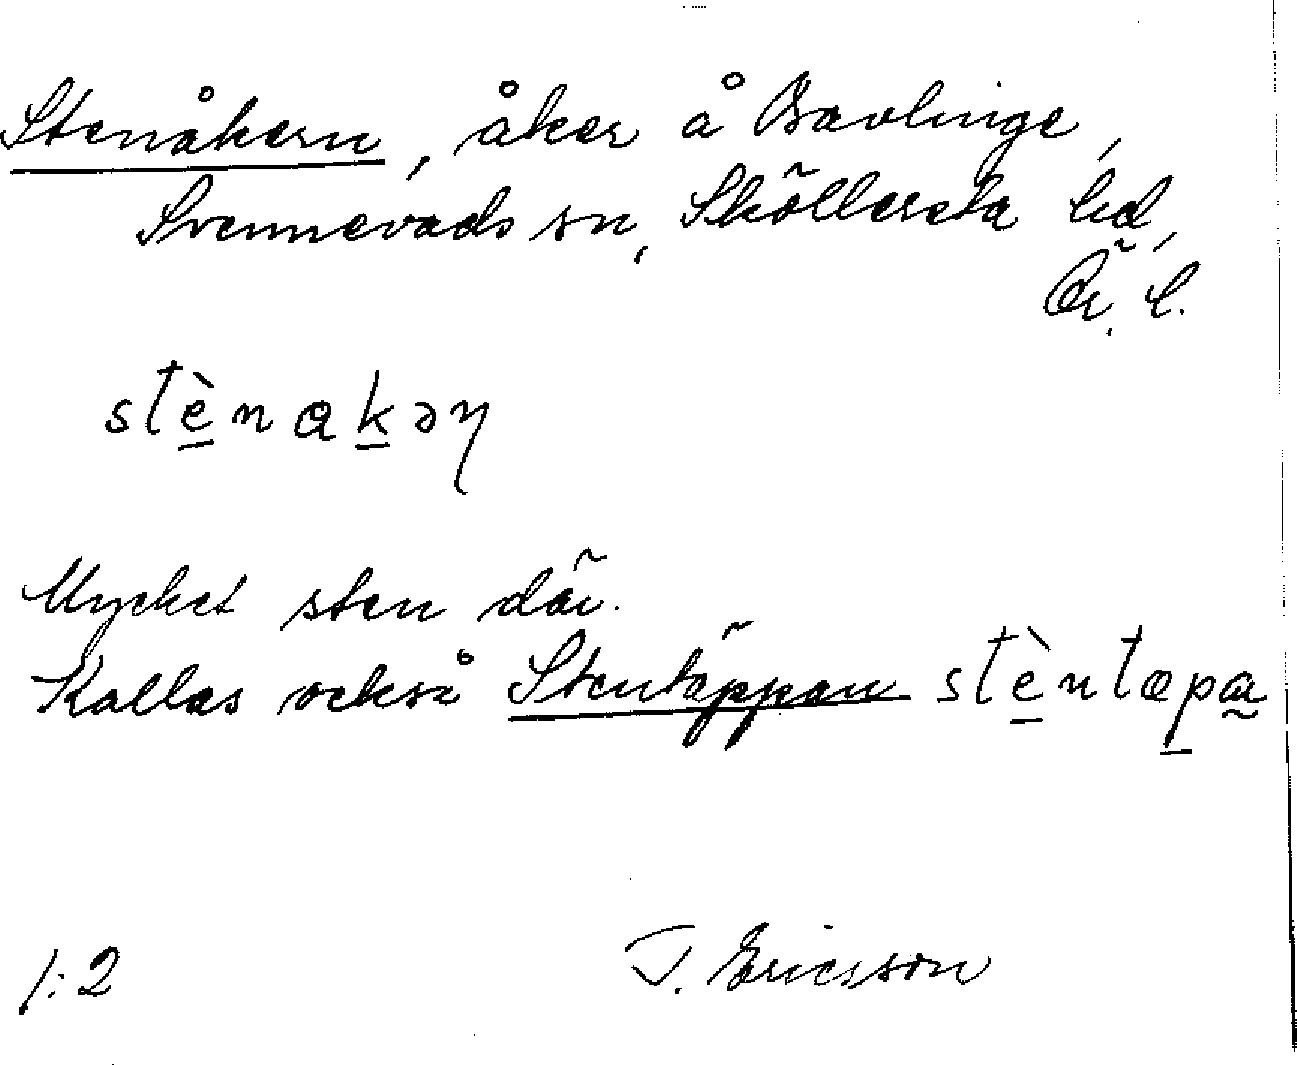 Stenåkern, åker å Bavlinge,
Svennevads sn, Sköllersta hd,
Ör. l.
stè̱nɑḵəɳ
Mycket sten där.
Kallas också Stentäppan stè̱ntæp̱a̰
1:2 T. Ericsson